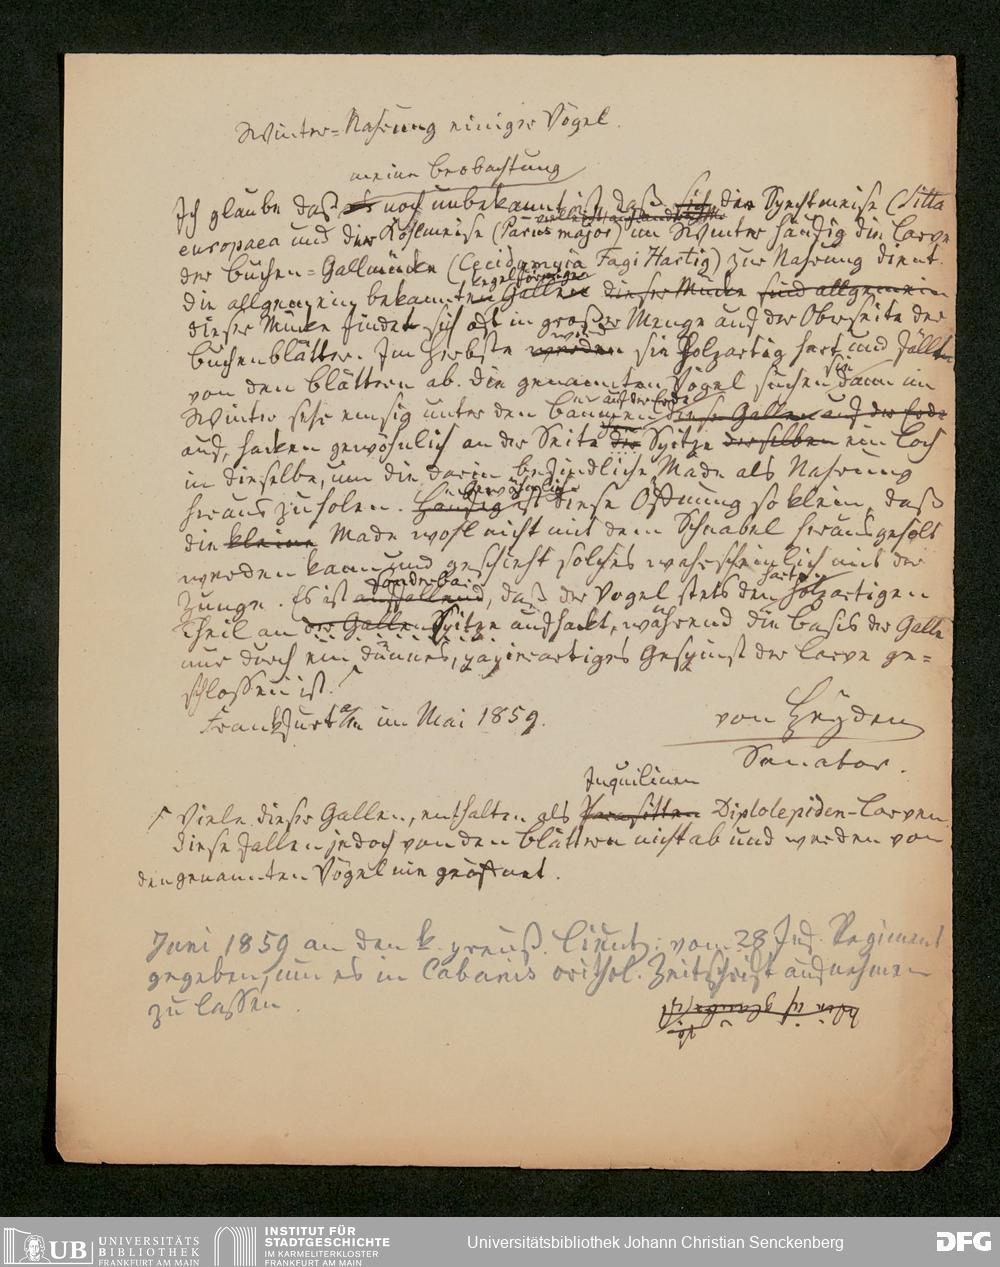 Winter-Nahrung einiger Vögel.
meine Beobachtung
Ich glaube daß es noch unbekannt ist, daß sich der Spechtmeise (Sitta
vielleicht
europaea und der Kohlmeise (Parus major) im Winter häufig die Larve
der Buchen-Gallmücke (Cecidomyia Fagi Hartig) zur Nahrung dient.
kegelförmigen
die allgemein bekannten Gallen dieser Mücke sind allgemein
dieser Mücke findet sich oft in großer Menge auf der Oberseite der
wird
Buchenblätter. Im Herbste werden sie holzartig hart und fallen
von den Blättern ab. Die genannten Vögel suchen sie dann im
auf der Erde
Winter sehr emsig unter den Bäumen diese Gallen auf der Erde
auf, hacken gewöhnlich an der Seite der Spitze derselben ein Loch
in dieselbe, um die darin befindliche Made als Nahrung
gewöhnlich
heraus zu holen. Häufig ist diese Öffnung so klein, daß
die kleine Made wohl nicht mit dem Schnabel herausgeholt
werden kann und geschieht solches wahrscheinlich mit der
sonderbar harten
Zunge. Es ist auffallend, daß der Vogel stets den holzartigen
Theil an der Gallen Spitze aufhackt, während die Basis der Galle
nur durch ein dünnes, papierartiges Gespinst der Larve ge-
schlossen ist.
Frankfurt a/m im Mai 1859.
von Heyden
Senator.
Inquilinen
Viele dieser Gallen, enthalten als Parasitten Diplolepiden-Larven.
Diese fallen jedoch von den Blättern nicht ab und werden von
den genannten Vögel nie geöffnet.
Juni 1859 an den k. preuß. Lieut: vom 28 Inf. Regiment
gegeben, um es in Cabanis ornithol. Zeitschrift aufnehmen
zu lassen.
UB UNIVERSITÄTS
BIBLIOTHEK
FRANKFURT AM MAIN
INSTITUT FÜR
STADTGESCHICHTE
IM KARMELITERKLOSTER
FRANKFURT AM MAIN
Universitätsbibliothek Johann Christian Senckenberg
DFG